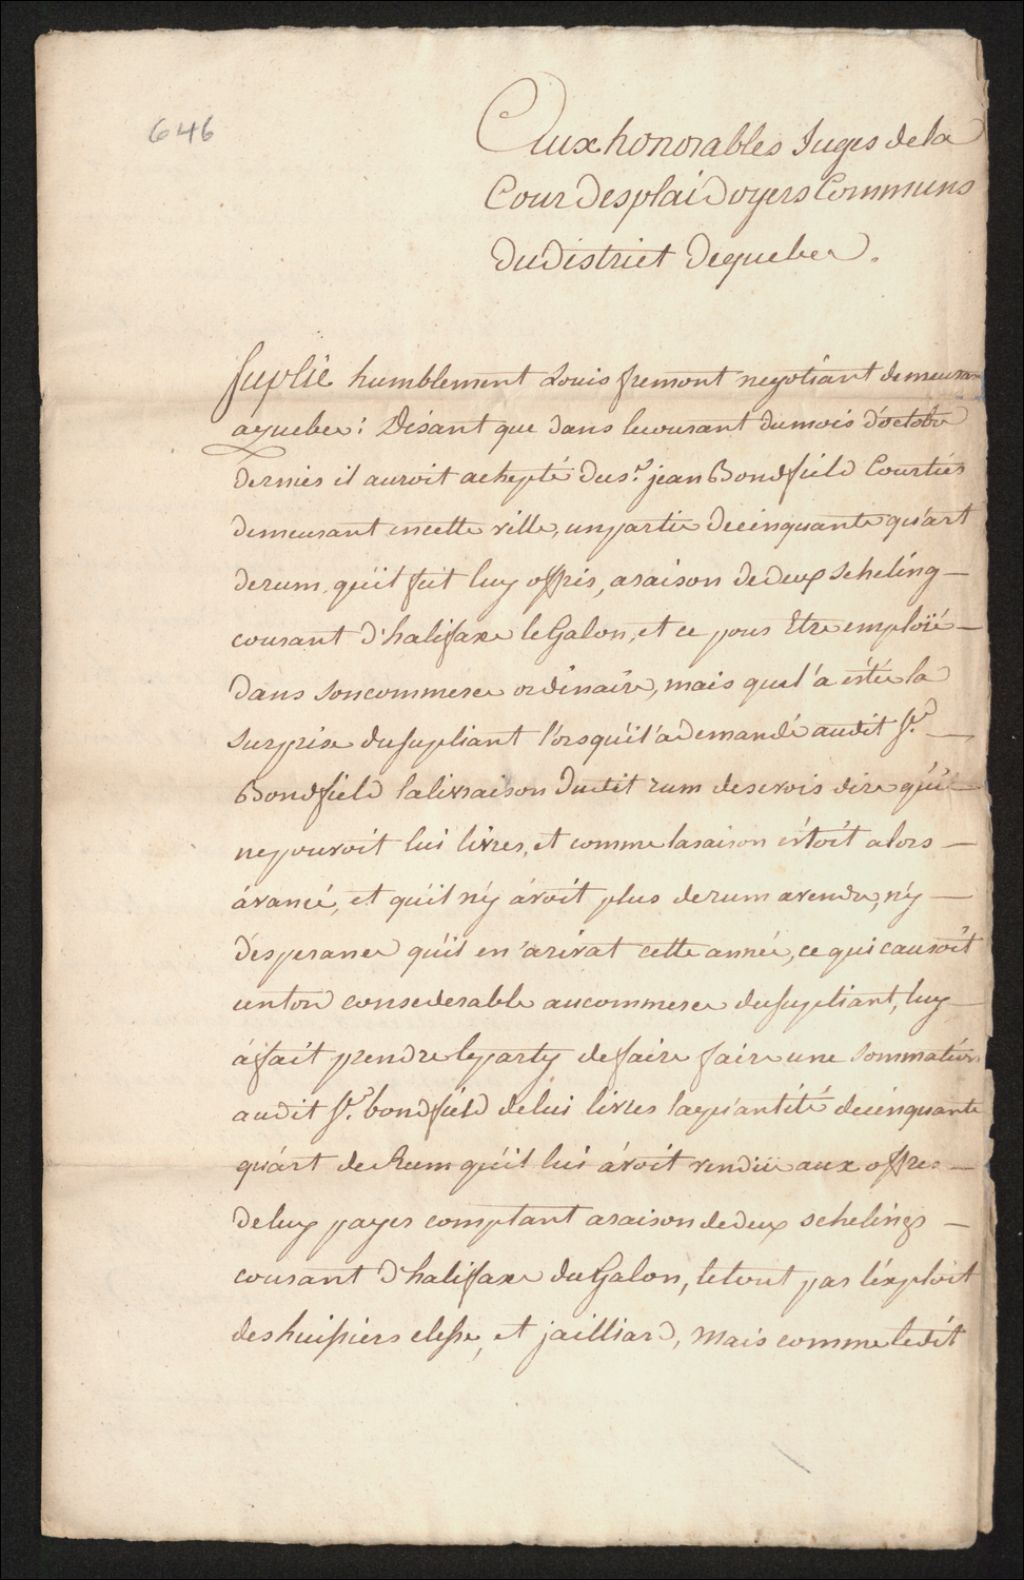 646
Aux honorables Juges de la
Cour Desplaidoyers Communs
Du District Dequebec.
Suplie humblement Louis fremont negotiant demeurant
aquebec: Disant que dans lecourant dumois d'octobre
dernier il auroit achepté dusr. jean Bondfield Courtier
demeurant encette ville, unpartie decinquante quart
derum, qu'il fut luy offrir, araison dedeux scheling
courant d'halifaxe leGalon, et ce pour Etre emploïé
dans soncommerce ordinaire, mais quel'a estée la
surprise dusupliant l'orsqu'il a demandé audit Sr.
Bondfield lalivraison Dudit rum deservoir dire qu'il
nepouvoit lui livrer, et comme lasaison estoit alors
avancé, et qu'il n'y avoit plus derum avendre, n'y
d'esperance qu'il en arivat cette année, ce qui causoit
unton considerable aucommerce dusupliant, luy
afait prendre leparty defaire faire une Sommation
audit Sr. bondfield delui livrer laquantité decinquante
quart de Rum qu'il lui avoit vendüe aux offres
deluy payer comptant araison dedeux schelings
courant d'halifaxe duGalon, letout par l'exploit
deshuissiers elesse, et jailliard, Mais comme ledit